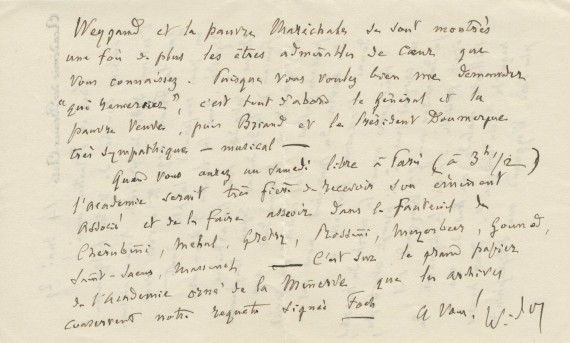 Weygand et la pauvre Maréchale se sont montrés
une fois de plus les êtres admirables de Cœur que
vous connaissez. Puisque vous voulez bien me demander
"qui remercier", c'est tout d'abord le Général et la
pauvre Veuve, puis Briand et le Président Doumergue
très sympathique — musical —
Quand vous aurez un samedi libre à Paris (à 3h 1/2)
l'Academie serait très fière de recevoir son éminent
Associé et de le faire asseoir dans le fauteuil de
Chérubini, Mehul, Gretry, Rossini, Meyerbeer, Gounod,
Saint-Saens, Massenet — C'est sur le grand papier
de l'Academie orné de la Minerve que les archives
conservent notre requête signée Foch
A vous!